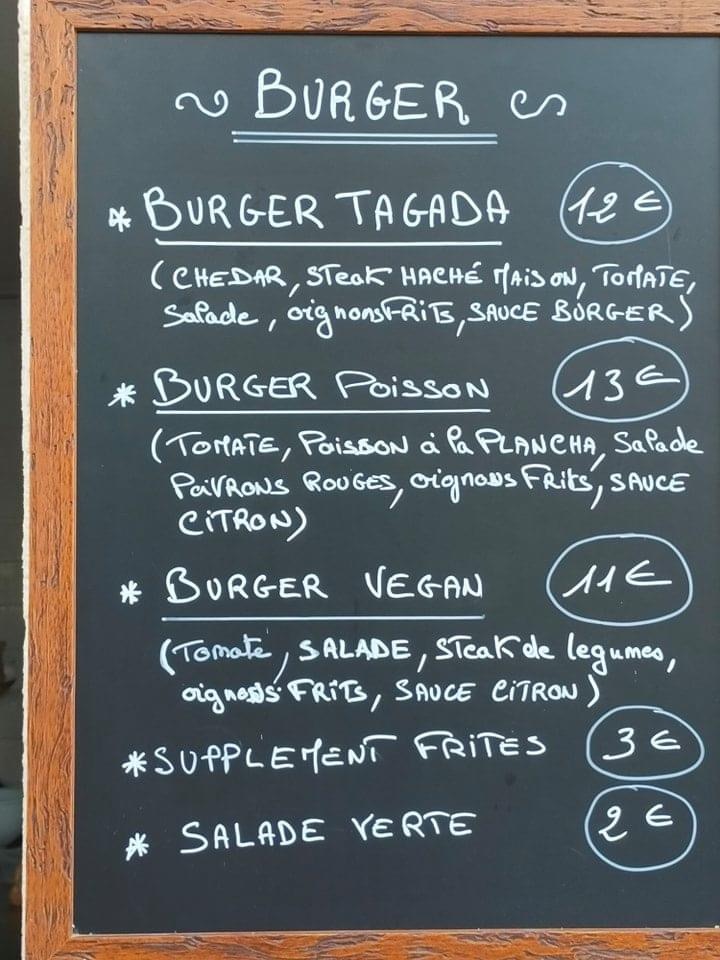 BURGER
* BURGER TAGADA 12 €
(CHEDAR, STEAK HACHÉ MAISON, TOMATE,
Salade, oignons FRITS, SAUCE BURGER)
* BURGER POISSON 13 €
(TOMATE, POISSON à la PLANCHA, Salade
POIVRONS ROUGES, oignons Frits, SAUCE
CITRON)
* BURGER VEGAN 11 €
(Tomate, SALADE, STEAK de legumes,
oignons FRITS, SAUCE CITRON)
* SUPPLEMENT FRITES 3 €
* SALADE VERTE 2 €